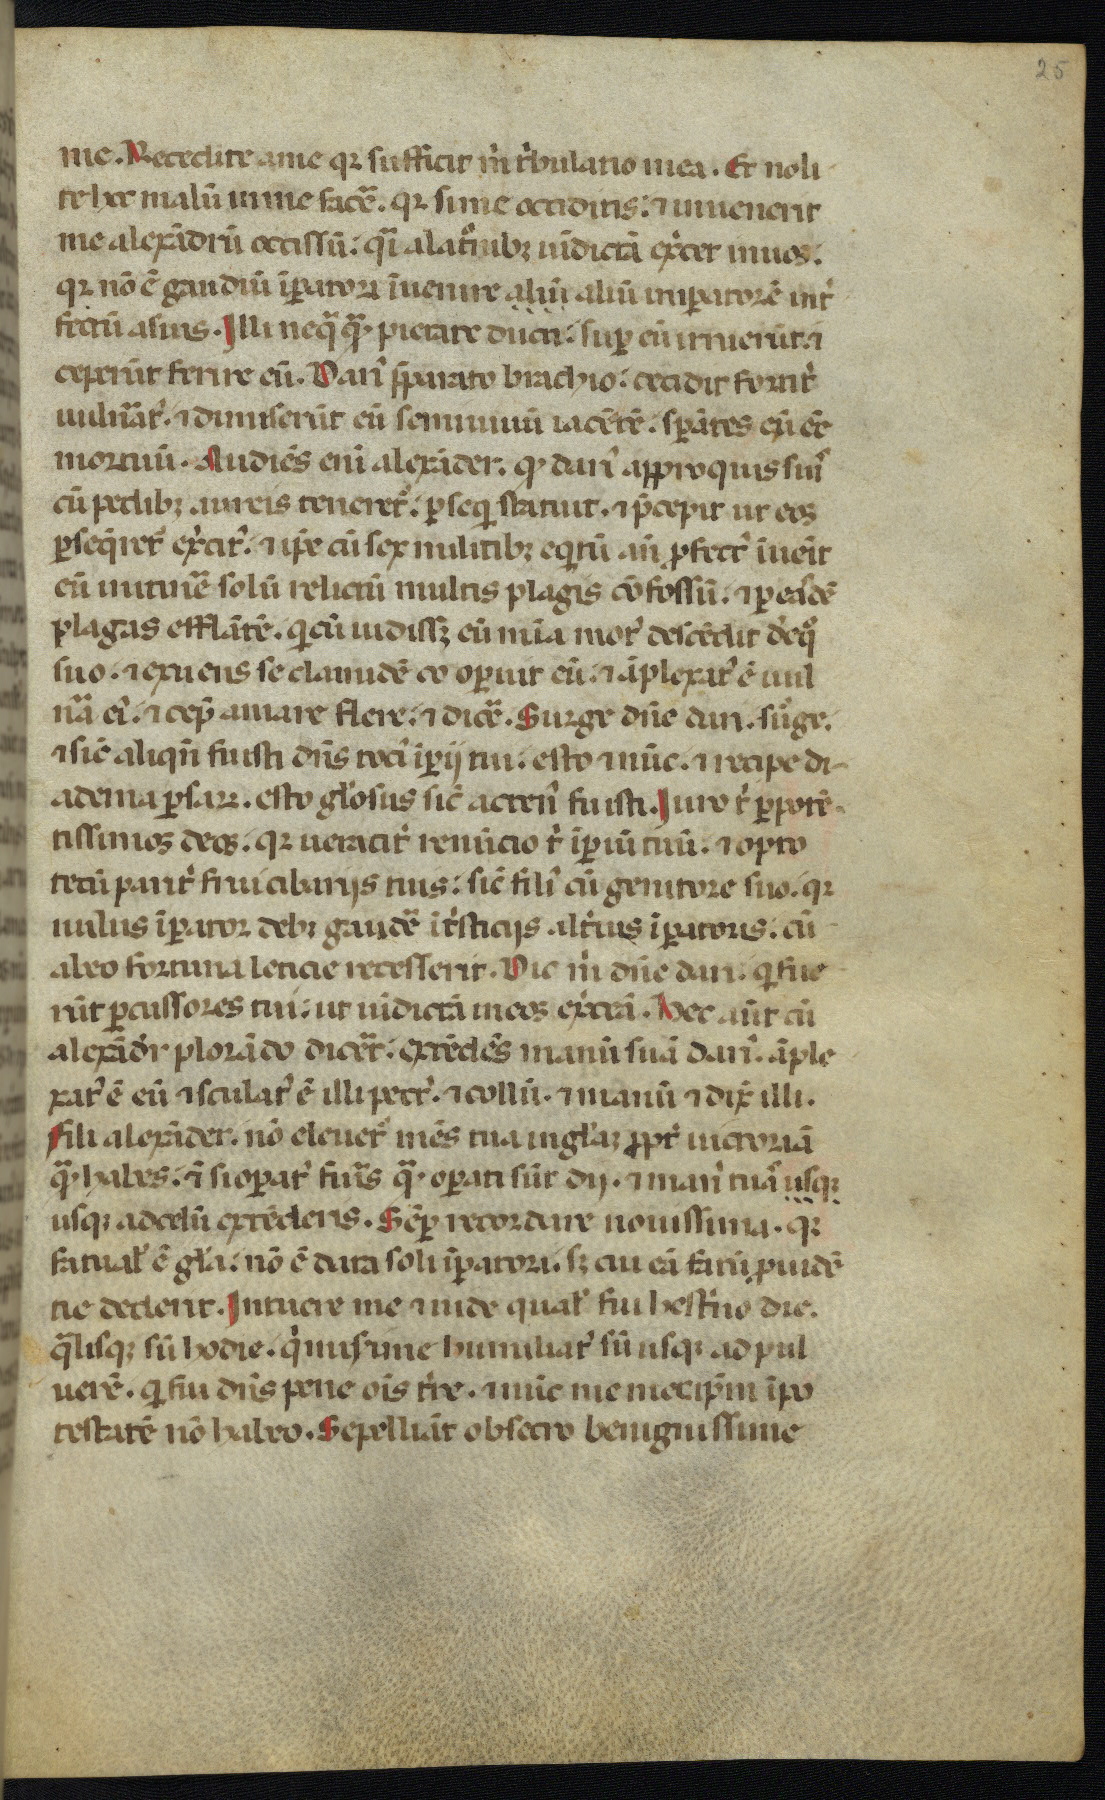 25
me. Recedite a me qꝛ sufficit m̄ t'bulatio mea. Et noli
te hec malū in me facē. qꝛ si me occiditis: ⁊ inuenerit
me alexādrū occissū: qͥ a latͦnibꝫ uīdictā ex̄cet in uos:
qꝛ nō ē gaudiū īꝑatori īuenire aliū aliū inꝑatorē int'
fectū a suis. Illi neqͣqͣꝫ pietate ducti: suꝑ eū irruerūt. ⁊
ceperūt ferire eū. Dari' sꝑarato brachio: cecidit fortit'
uulnāt'. ⁊ dimiserūt eū semiuiuū iacētē. sꝑātes eū eē
mortuū. Audiēs eni alexāder. ꝙ dari' a ꝓpͥquis suis
cū pedibꝫ aureis teneret': ꝑseqͥ statuit. ⁊ p̄cepit ut eos
ꝑseq̄ret' ex̄cit'. ⁊ ip̄e cū sex militibꝫ eqͥtū aū ꝓfect' īuēit
eū in itinē solū relictū multis plagis cōfossū: ⁊ ꝑ easdē
plagas efflātē. qͥ cū uidissꝫ eū mīa mot' descēdit de eqͦ
suo. ⁊ exuens se clamidē cooꝑuit eū. ⁊ āplexat' ē uul
nā ei'. ⁊ cep̄ amare flere. ⁊ dicē. Surge dn̄e dari. sūge.
⁊ sic̄ aliqn̄ fuisti dn̄s toci' īꝑij tui: esto ⁊ nūc. ⁊ recipe di-
adema ꝑsaꝝ. esto gl'osus sic̄ acten' fuisti. Iuro t' ꝑpotē-
tissimos deos: qꝛ ueracit' renūcio t' īꝑiū tuū. ⁊ opto
tecū parit' frui cibarijs tuis: sic̄ fili' cū genitore suo. qꝛ
nulus īꝑator debꝫ gaudē ī t'sticijs alt'ius īꝑatoris: cū
ab eo fortuna leticie recesserit. Dic m̄ dn̄e dari: qͥ fue
rūt ꝑcussores tui: ut uīdictā in eos ex̄ceā. Hec aūt cū
alexād'r plorādo dicēt: extēdēs manū suā dari'. āple
xat' ē eū ⁊ osculat' ē illi pect'. ⁊ collū. ⁊ manū ⁊ dix̄ illi.
Fili alexāder. nō eleuet' mēs tua in gl'aꝫ ꝓpt' uictoriā
qͣꝫ habes. ⁊ si oꝑat' fu'is qͣꝫ oꝑati sūt dij. ⁊ man' tuā usqꝫ
usqꝫ ad celū extēderis. Sēꝑ recordare nouissima. qꝛ
fatual' ē gl'a: nō ē data soli īꝑatori. sꝫ cui eā fatū ꝓuidē
tie dederit. Intuere me ⁊ uide qual' fui hest'no die.
qͣlisqꝫ sū hodie. qͥ miserime humiliat' sū usqꝫ ad pul
uerē. qͥ fui dn̄s pene oīs t're. ⁊ nūc me metip̄m ī po
testatē nō habeo. Sepelliāt obsecro benignissime